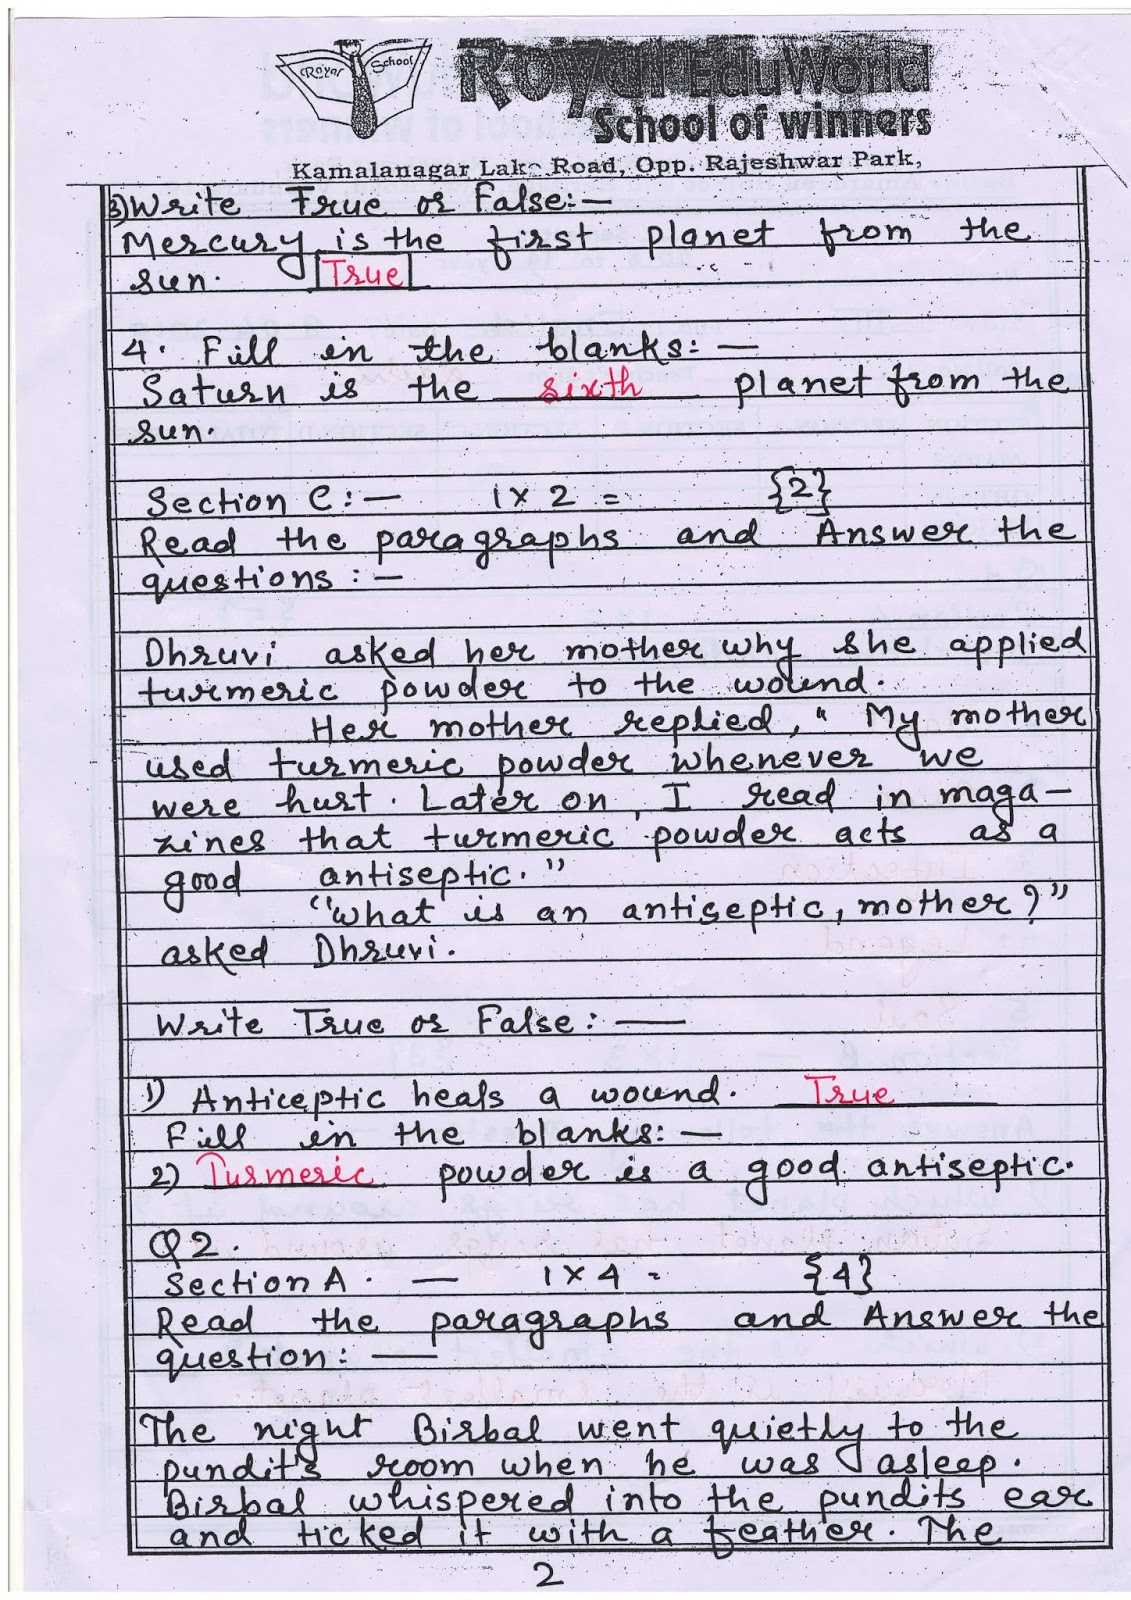 Royal School
Royal EduWorld
School of winners
Kamalanagar Lake Road, Opp. Rajeshwar Park,
3) Write True or False:—
Mercury is the first planet from the
sun. True
4. Fill in the blanks:—
Saturn is the sixth planet from the
sun.
Section C:— 1 x 2 = {2}
Read the paragraphs and Answer the
questions:—
Dhruvi asked her mother why she applied
turmeric powder to the wound.
Her mother replied, " My mother
used turmeric powder whenever we
were hurt. Later on, I read in maga-
zines that turmeric powder acts as a
good antiseptic."
"What is an antiseptic, mother?"
asked Dhruvi.
Write True or False:—
1) Anticeptic heals a wound. True
Fill in the blanks:—
2) Turmeric powder is a good antiseptic.
Q2.
Section A. — 1 x 4 = {4}
Read the paragraphs and Answer the
question:—
The night Birbal went quietly to the
pundit's room when he was asleep.
Birbal whispered into the pundits ear
and ticked it with a feather. The
2